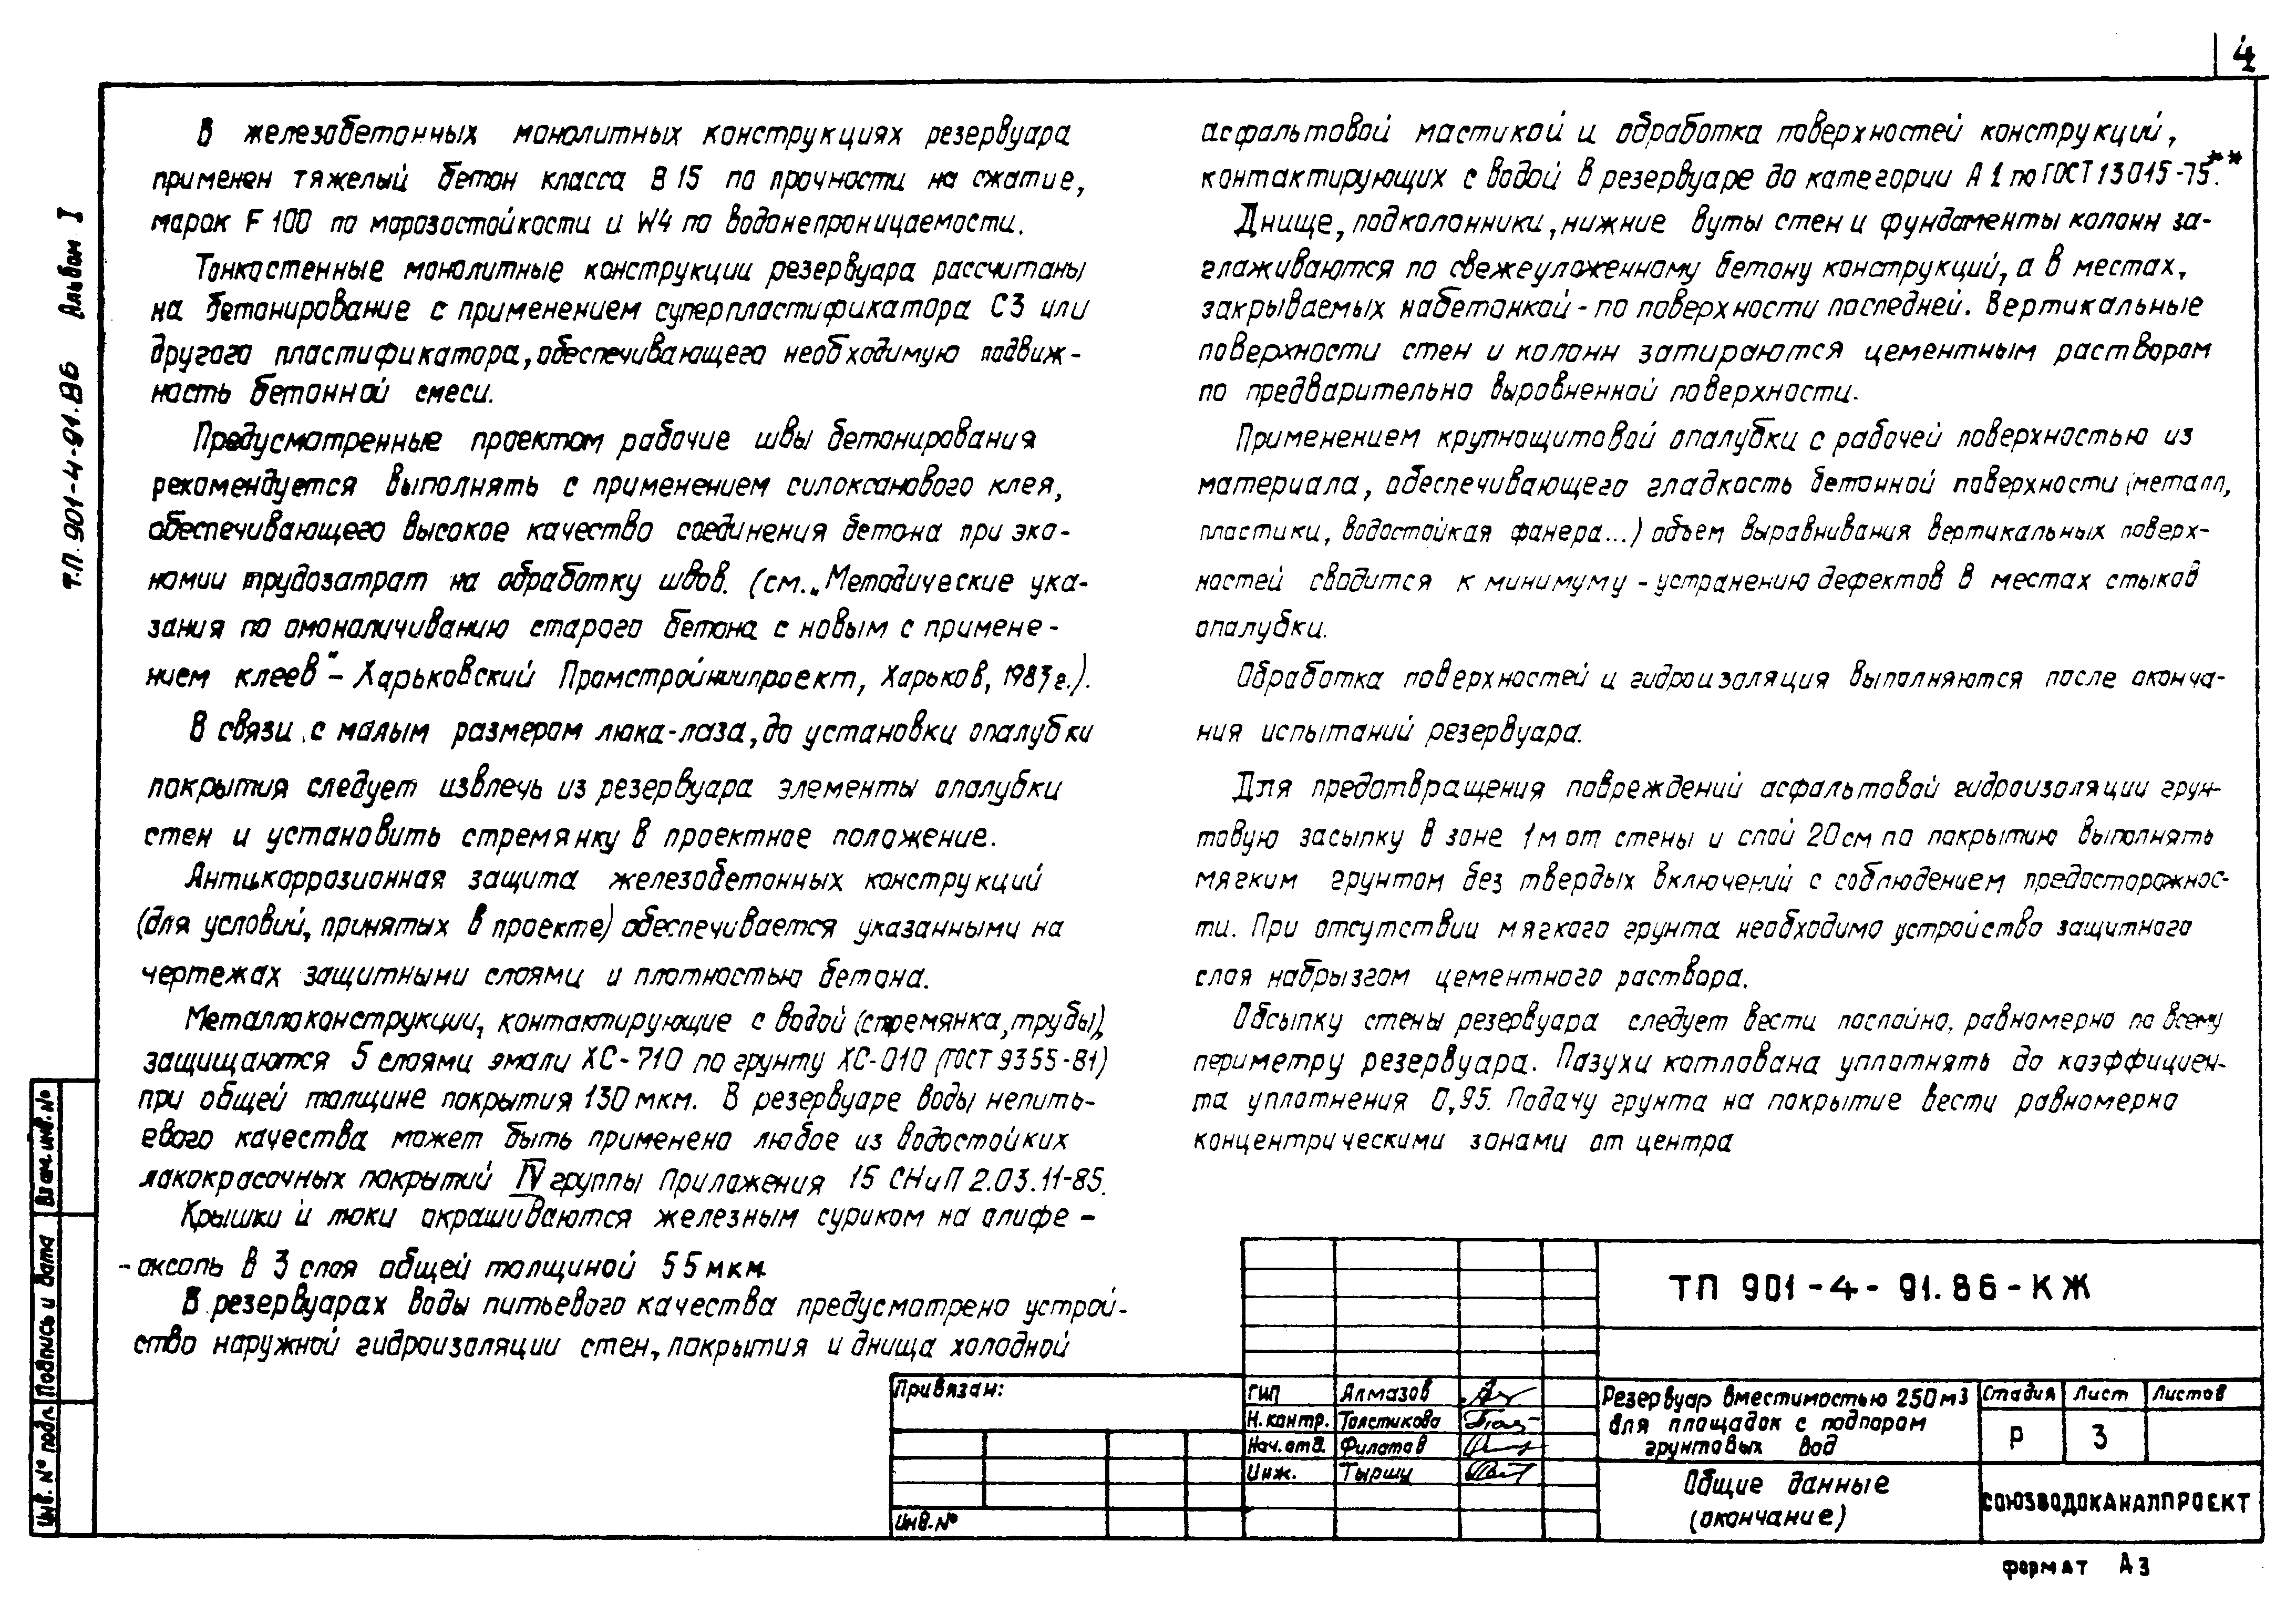 4
В железобетонных монолитных конструкциях резервуара
применен тяжелый бетон класса В 15 по прочности на сжатие,
марок F 100 по морозостойкости и W4 по водонепроницаемости.
Тонкостенные монолитные конструкции резервуара рассчитаны
на бетонирование с применением суперпластификатора С3 или
другого пластификатора, обеспечивающего необходимую подвиж-
ность бетонной смеси.
Предусмотренные проектом рабочие швы бетонирования
рекомендуется выполнять с применением силоксанового клея,
обеспечивающего высокое качество соединения бетона при эко-
номии трудозатрат на обработку швов. (см. „Методические ука-
зания по омоноличиванию старого бетона с новым с примене-
нием клеев" - Харьковский Промстройниипроект, Харьков, 1983г.).
В связи с малым размером люка-лаза, до установки опалубки
покрытия следует извлечь из резервуара элементы опалубки
стен и установить стремянку в проектное положение.
Антикоррозионная защита железобетонных конструкций
(для условий, принятых в проекте) обеспечивается указанными на
чертежах защитными слоями и плотностью бетона.
Металлоконструкции, контактирующие с водой (стремянка, трубы),
защищаются 5 слоями эмали ХС-710 по грунту ХС-010 (ГОСТ 9355-81)
при общей толщине покрытия 130 мкм. В резервуаре воды непить-
евого качества может быть применено любое из водостойких
лакокрасочных покрытий IV группы Приложения 15 СНиП 2.03.11-85.
Крышки и люки окрашиваются железным суриком на олифе -
- оксоль в 3 слоя общей толщиной 55 мкм.
В резервуарах воды питьевого качества предусмотрено устрой-
ство наружной гидроизоляции стен, покрытия и днища холодной
асфальтовой мастикой и обработка поверхностей конструкций,
контактирующих с водой в резервуаре до категории А 1 по ГОСТ 13015-75.**
Днище, подколонники, нижние вуты стен и фундаменты колонн за-
глаживаются по свежеуложенному бетону конструкций, а в местах,
закрываемых набетонкой - по поверхности последней. Вертикальные
поверхности стен и колонн затираются цементным раствором
по предварительно выровненной поверхности.
Применением крупнощитовой опалубки с рабочей поверхностью из
материала, обеспечивающего гладкость бетонной поверхности (металл,
пластики, водостойкая фанера...) объем выравнивания вертикальных поверх-
ностей сводится к минимуму - устранению дефектов в местах стыков
опалубки.
Обработка поверхностей и гидроизоляция выполняются после оконча-
ния испытаний резервуара.
Для предотвращения повреждений асфальтовой гидроизоляции грун-
товую засыпку в зоне 1м от стены и слой 20см по покрытию выполнять
мягким грунтом без твердых включений с соблюдением предосторожнос-
ти. При отсутствии мягкого грунта необходимо устройство защитного
слоя набрызгом цементного раствора.
Обсыпку стены резервуара следует вести послойно, равномерно по всему
периметру резервуара. Пазухи котлована уплотнять до коэффициен-
та уплотнения 0,95. Подачу грунта на покрытие вести равномерно
концентрическими зонами от центра
Т.П. 901-4-91.86 Альбом I
Инв. № подл. Подпись и дата Взам. инв. №
Привязан:
Инв. №
ГИП Алмазов
Н. контр. Толстикова
Нач. отд. Филатов
Инж. Тыршу
ТП 901-4-91.86-КЖ
Резервуар вместимостью 250 м3
для площадок с подпором
грунтовых вод
Стадия Лист Листов
Р 3
Общие данные
(окончание)
СОЮЗВОДОКАНАЛПРОЕКТ
формат А3